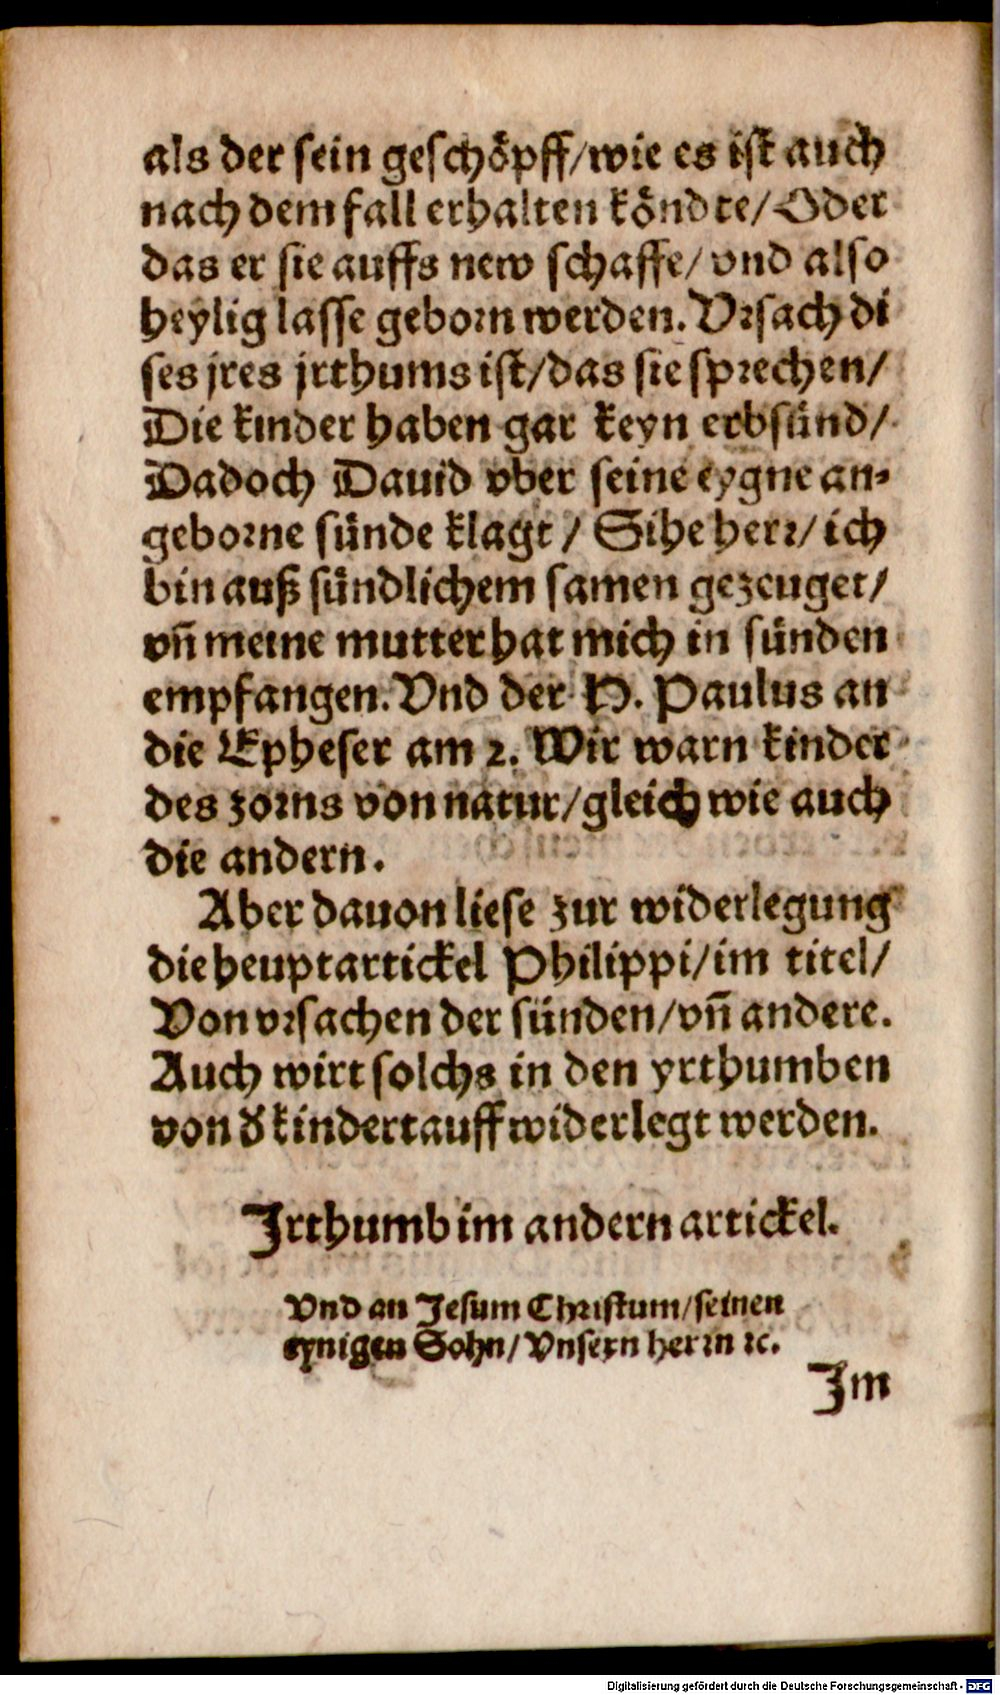 als der sein geschöpff/wie es ist auch
nach dem fall erhalten köndte/Oder
das er sie auffs new schaffe/vnd also
heylig lasse geborn werden. Vrsach di
ses jres jrthums ist/das sie sprechen/
Die kinder haben gar keyn erbsünd/
Dadoch Dauid vber seine eygne an⸗
geborne sünde klagt/Sihe herr/ich
bin auß sündlichem samen gezeuget/
vñ meine mutter hat mich in sünden
empfangen. Vnd der H. Paulus an
die Epheser am 2. Wir warn kinder
des zorns von natur/gleich wie auch
die andern.
Aber dauon liese zur widerlegung
die heuptartickel Philippi/im titel/
Von vrsachen der sünden/vñ andere.
Auch wirt solchs in den yrthumben
von d̕ kindertauff widerlegt werden.
Jrthumb im andern artickel.
Vnd an Jesum Christum/seinen
eynigen Sohn/Vnsern herrn ꝛc.
Jm
Digitalisierung gefördert durch die Deutsche Forschungsgemeinschaft - DFG